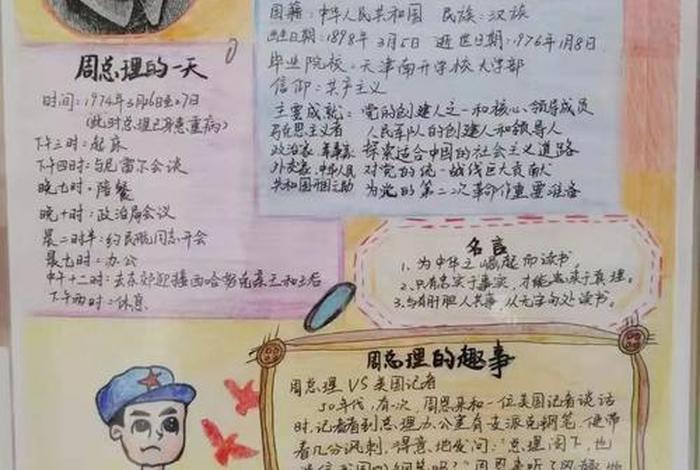 国籍:中华人民共和国 民族:汉族
出生日期:1898年3月5日 逝世日期:1976年1月8日
毕业院校:天津南开学校大学部
信仰:共产主义
主要成就: 党的创建人之一和核心领导成员
马克思主义者 人民军队的创建人和领导人
政治家、军事家 探索适合中国的社会主义道路
外交家、中华人民 对党的统一战线巨大贡献
共和国开国元勋 为党的第二次革命作重要准备
周总理的一天
时间:1974年3月26日至27日
(此时总理已身患重病)
下午三时:起床
下午四时:与尼雷尔会谈
晚七时:陪餐
晚十时:政治局会议
晨二时半:约民航同志开会
晨七时:办公
中午十二时:去东郊迎接西哈努克亲王和王后
下午两时:休息
名言
1、为中华之崛起而读书。
2、只有忠实于事实,才能忠实于真理。
3、与有肝胆人共事,从无字句处读书。
周总理的趣事
周总理 VS 美国记者
50年代,有一次,周恩来和一位美国记者谈话
时,记者看到总理办公室有支派克钢笔,便带
着几分讽刺,得意地发问:“总理阁下,也